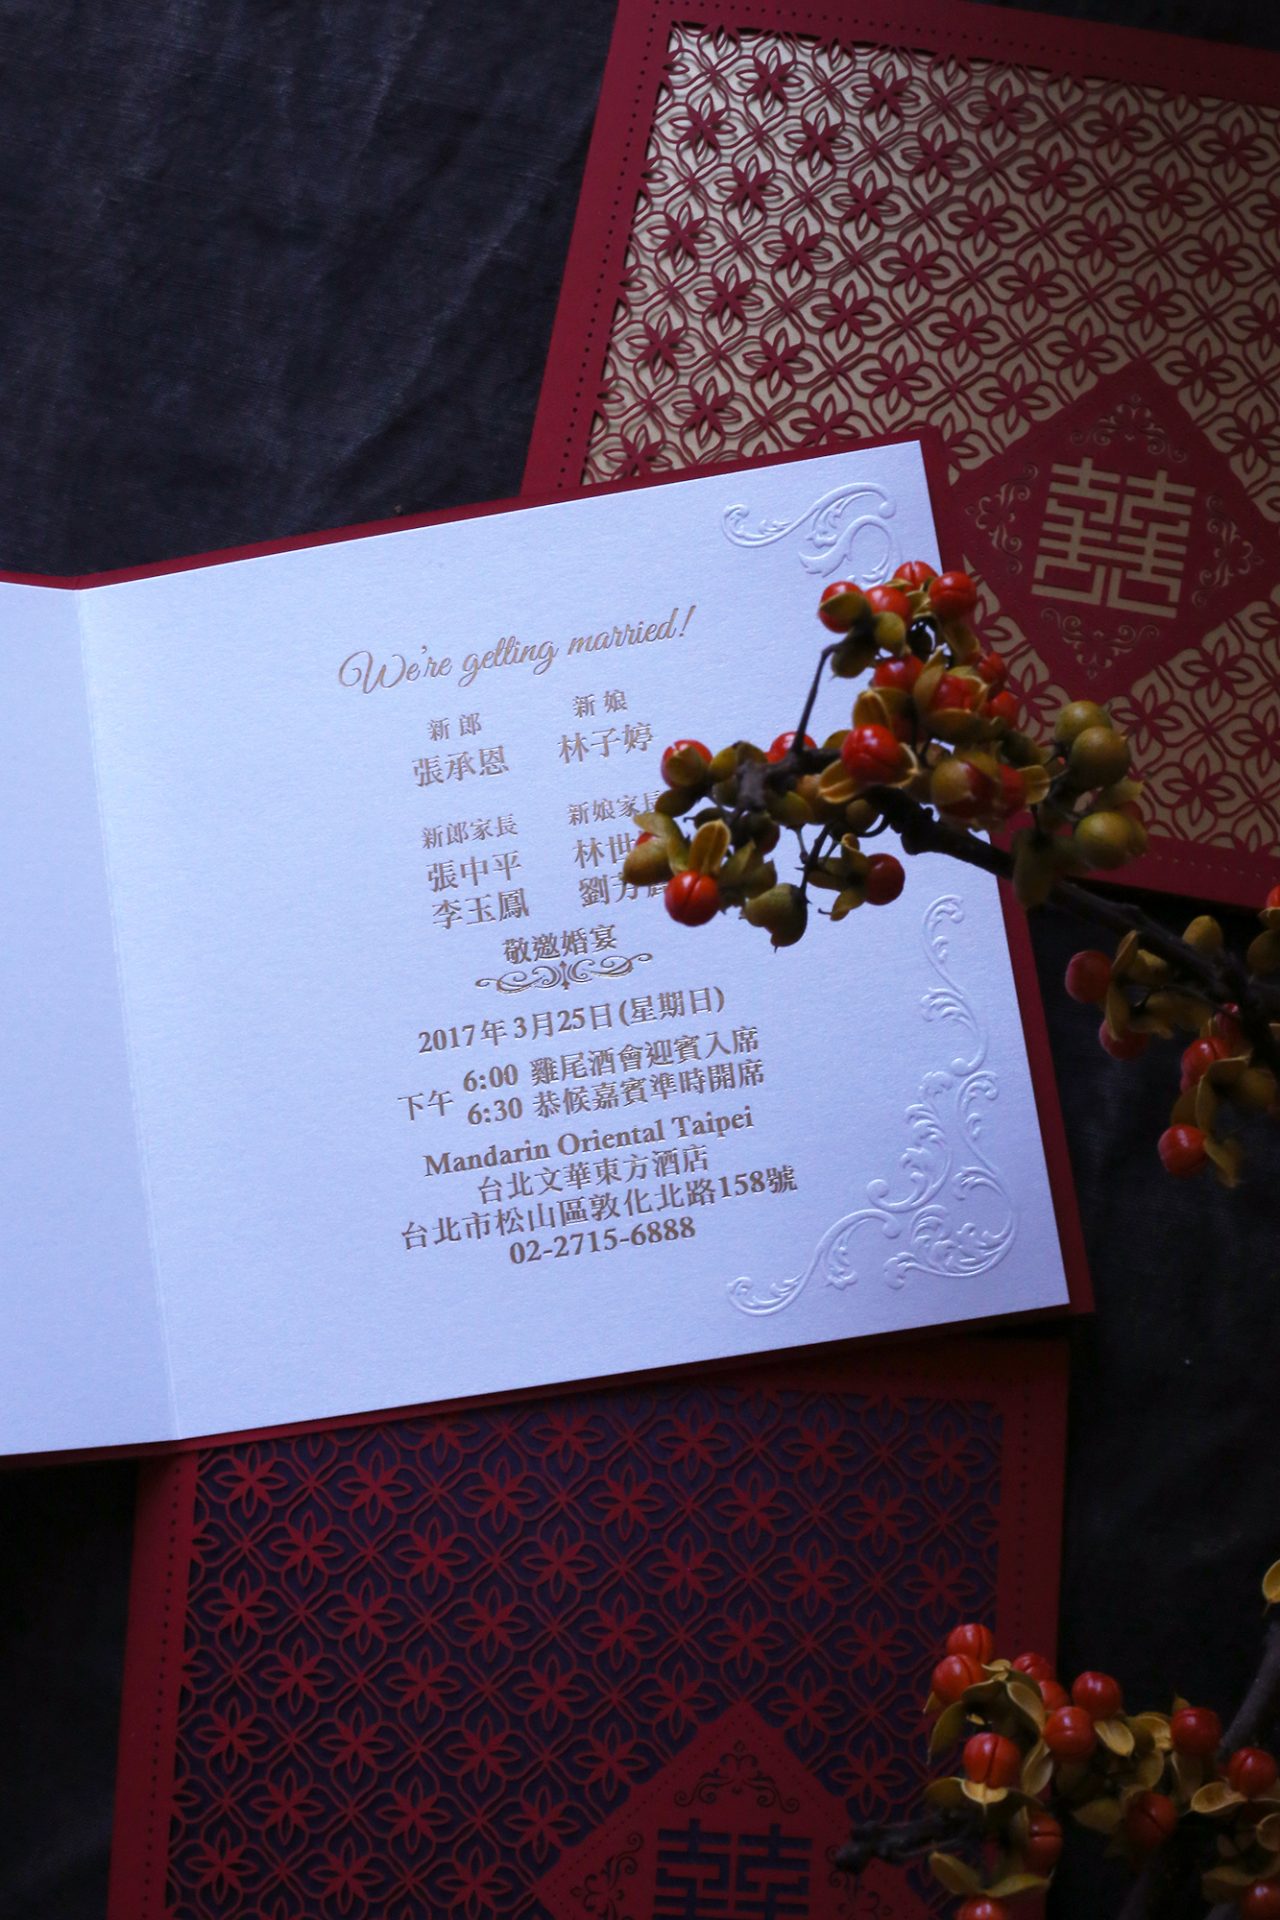 We're getting married!
新郎 新娘
張承恩 林子婷
新郎家長 新娘家長
張中平 林世
李玉鳳 劉芳
敬邀婚宴
2017年3月25日(星期日)
下午 6:00 雞尾酒會迎賓入席
6:30 恭候嘉賓準時開席
Mandarin Oriental Taipei
台北文華東方酒店
台北市松山區敦化北路158號
02-2715-6888
囍
囍